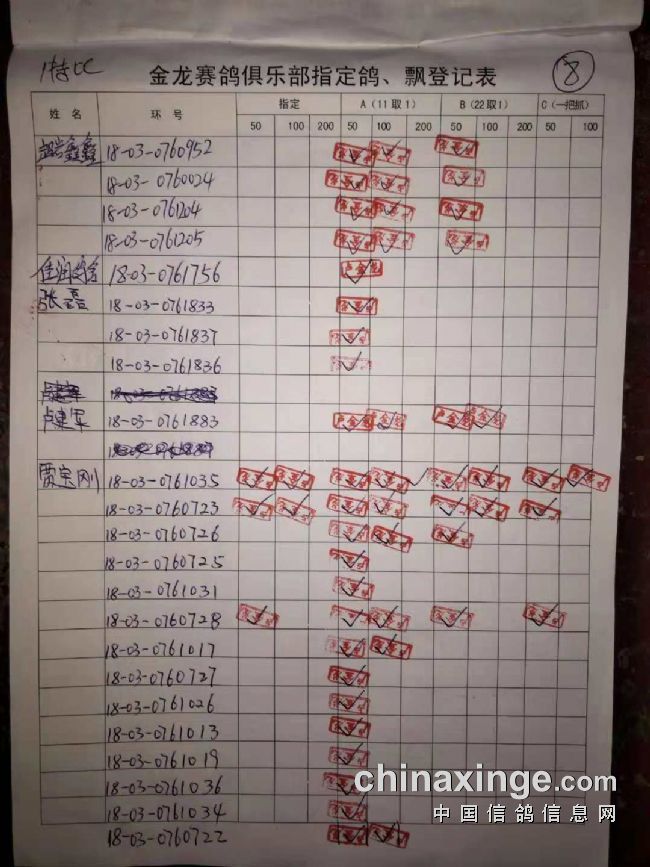 1特比
金龙赛鸽俱乐部指定鸽、飘登记表
8
姓 名 环 号 指定 A（11取1） B（22取1） C（一把抓）
50 100 200 50 100 200 50 100 200 50 100
鑫鑫 18-03-0760952
18-03-0760024
18-03-0761204
18-03-0761205
佳润鸽舍 18-03-0761756
张磊 18-03-0761833
18-03-0761837
18-03-0761836
卢建军 18-03-0761883
贾宝刚 18-03-0761035
18-03-0760723
18-03-0760726
18-03-0760725
18-03-0761031
18-03-0760728
18-03-0761017
18-03-0760727
18-03-0761026
18-03-0761013
18-03-0761019
18-03-0761036
18-03-0761034
18-03-0760722
chinaxinge.com
中国信鸽信息网